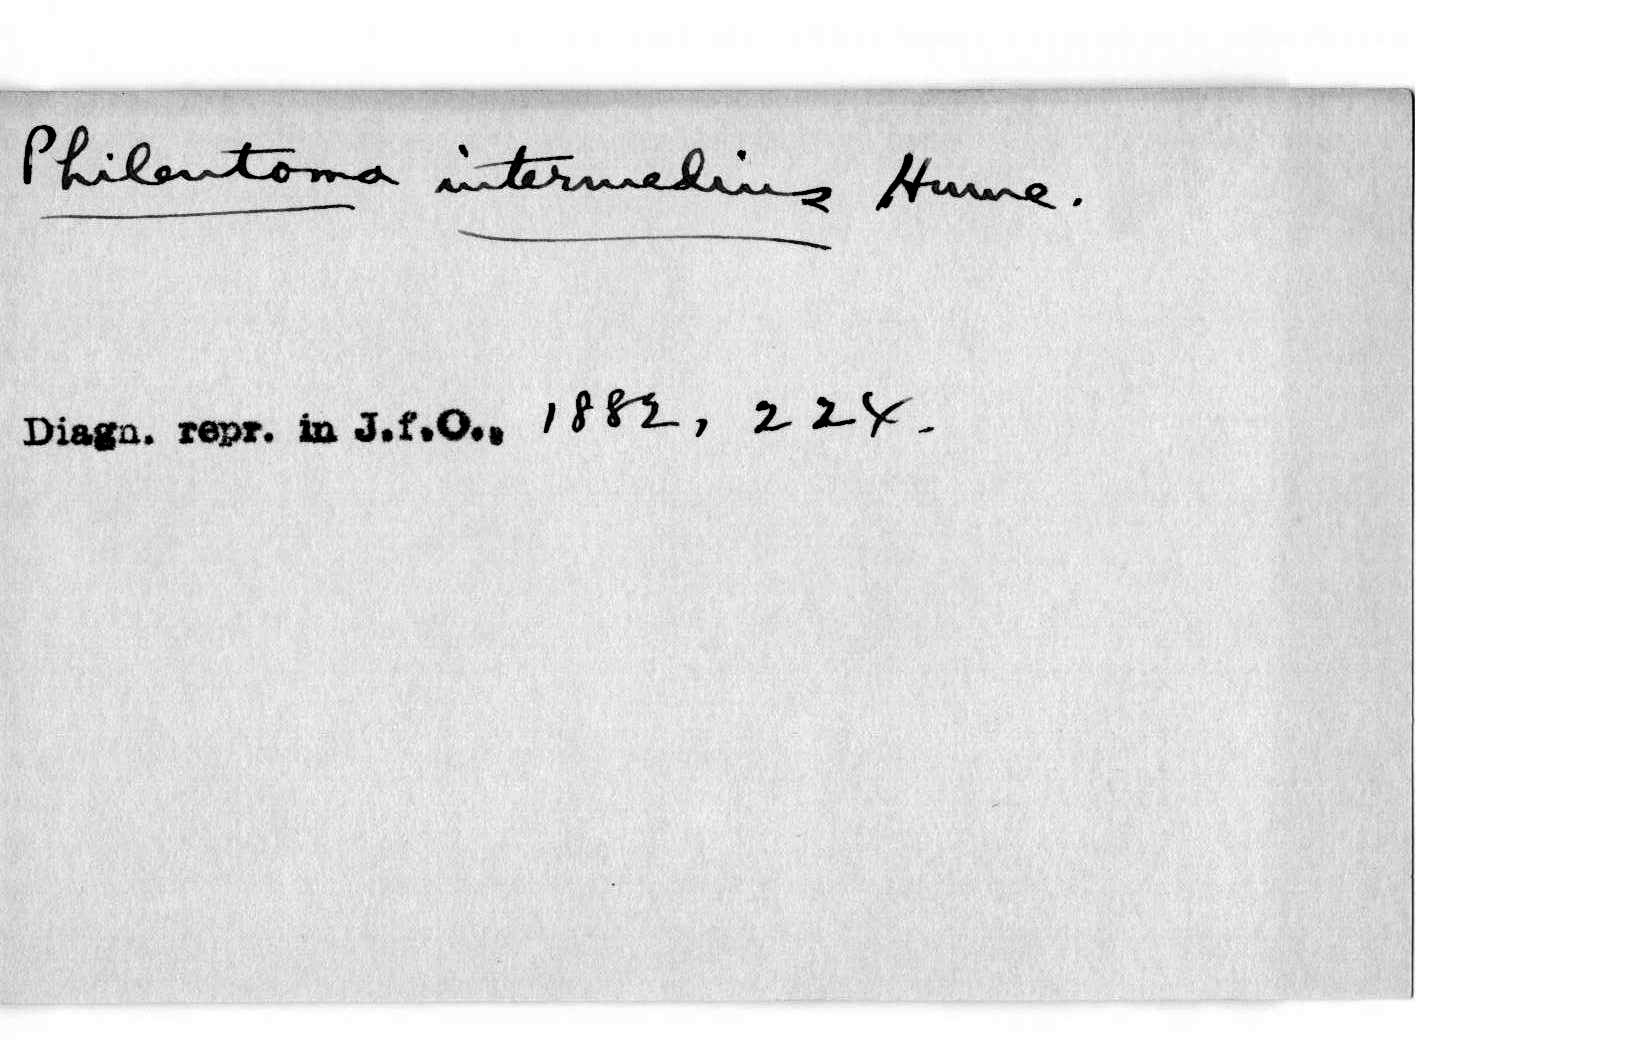 Philentoma intermedius Hume.
Diagn. repr. in J.f.O., 1882, 224.